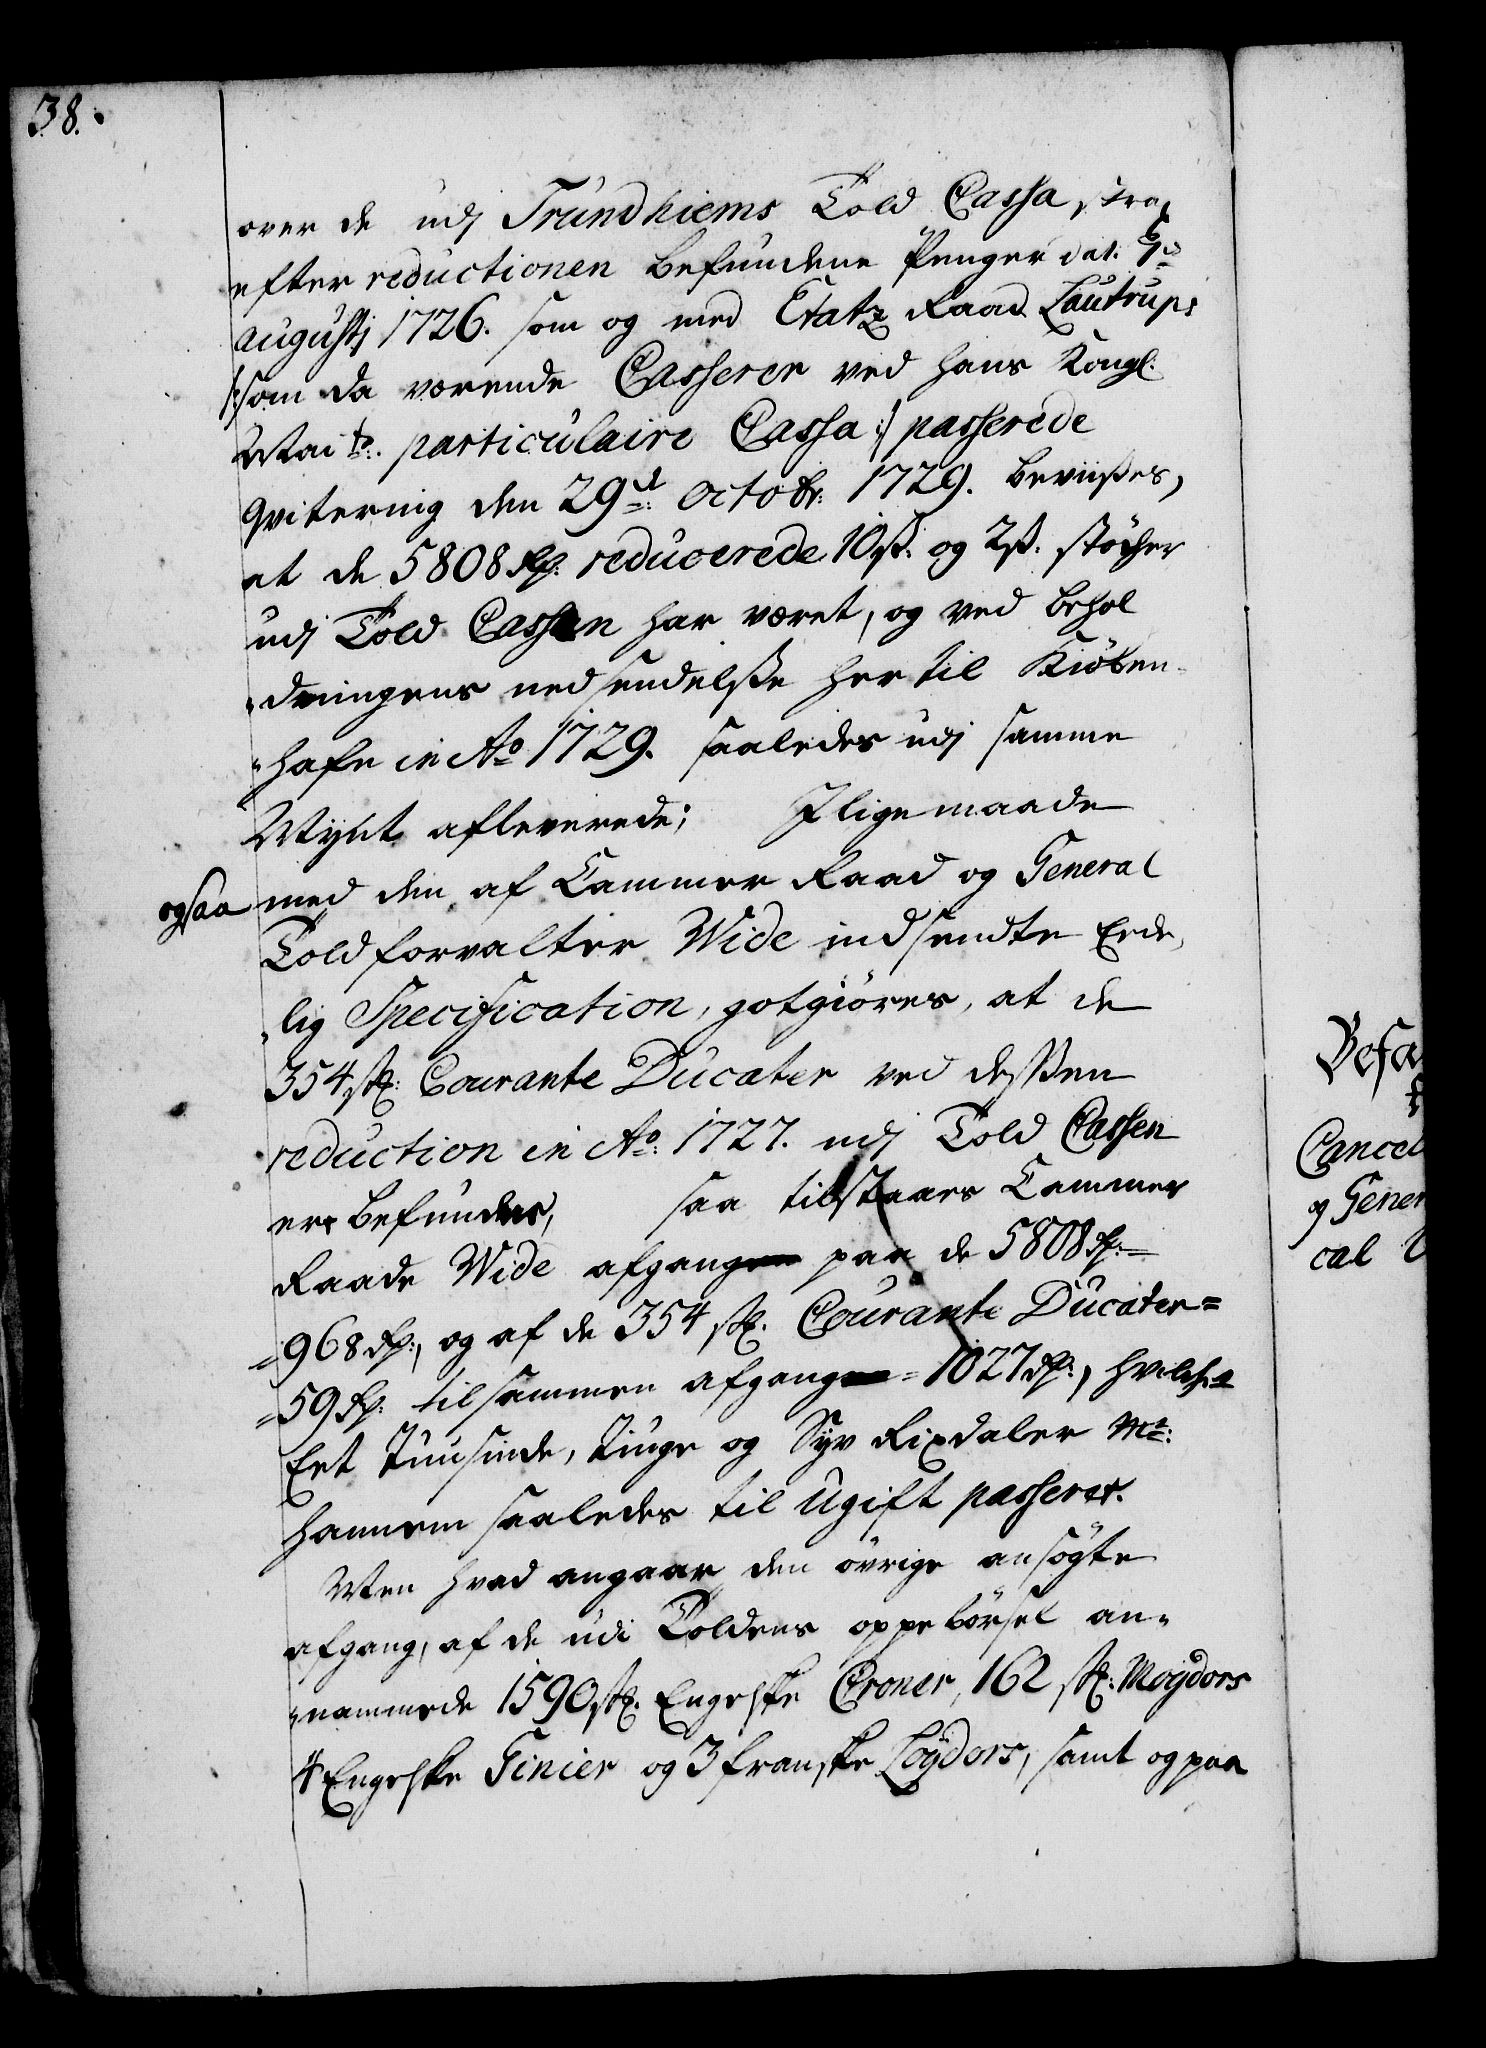 38.
over de udj Trundhiems Told Cassa, strax
efter reductionen befundene Penger dat:
augustj 1726. som og med Etatz Raad Lautrups
/:som da værende Casserer ved hans Kongl:
Mai:ts particulaire Cassa:/ passerede
qvitering den 29de octobr: 1729. beviises,
at de 5808 rd: reducerede 10ß. og 2ß. støcher
udj Told Cassen har været, og ved behol
dningens nedsendelsse her til Kiøben-
hafn in Ao 1729. saaledes udj samme
Mynt afleverede; Jligemaade
ogsaa med den af Cammer Raad og General
Toldforvalter Wide indsendte Eede,
lig Specification, gotgiøres, at de
354 stk: Courante Ducater ved dessen
reduction in Ao: 1727. udj Told Cassen
er befunden, saa tilstaaes Cammer
Raade Wide afgang paa de 5808 rd:=
=968 rd:, og af de 354 stk. Courante Ducater=
=59 rd: tilsammen afgang =1027 rd:, hvilche
Eet Tuusinde, tiuge og Syv Rixdaler
hannem saaledes til Udgift passerer.
Men hvad angaar den øvrige ansøgte
afgang, af de udi Toldens oppebørsel an-
nammede 1590 stk. Engelske Croner, 162 stk: Moydors
4 Engelske Ginier og 3 franske Loydors, samt og paa
Befa
Cancel
og Gener
cal